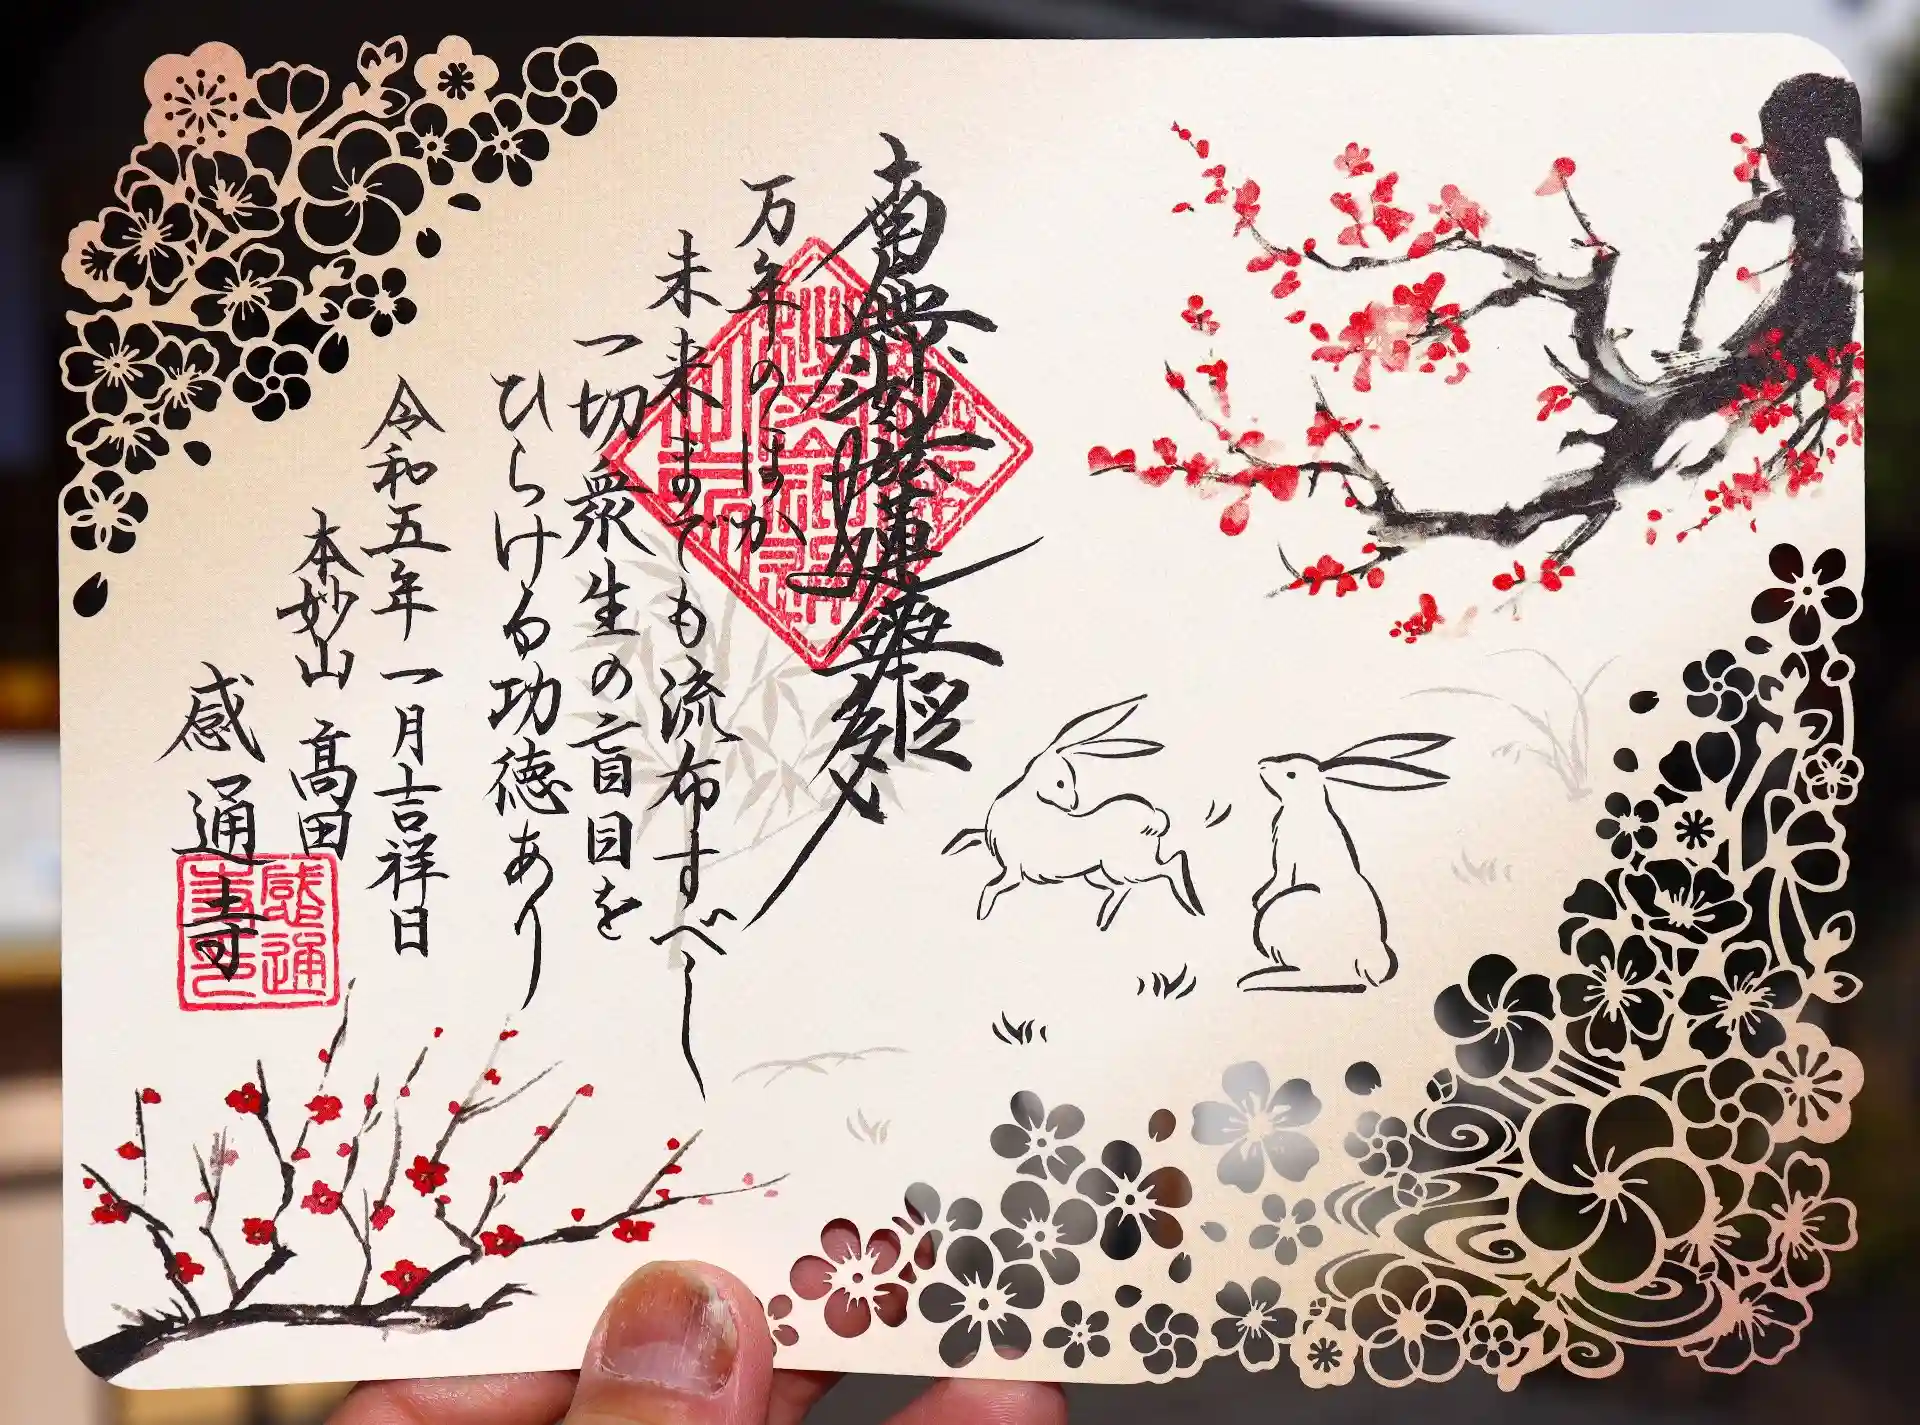 南無妙法蓮華経
万年のほか
未来までも流布すべし
一切衆生の盲目を
ひらける功徳あり
令和五年一月吉祥日
本妙山 髙田
感通寺
感通寺